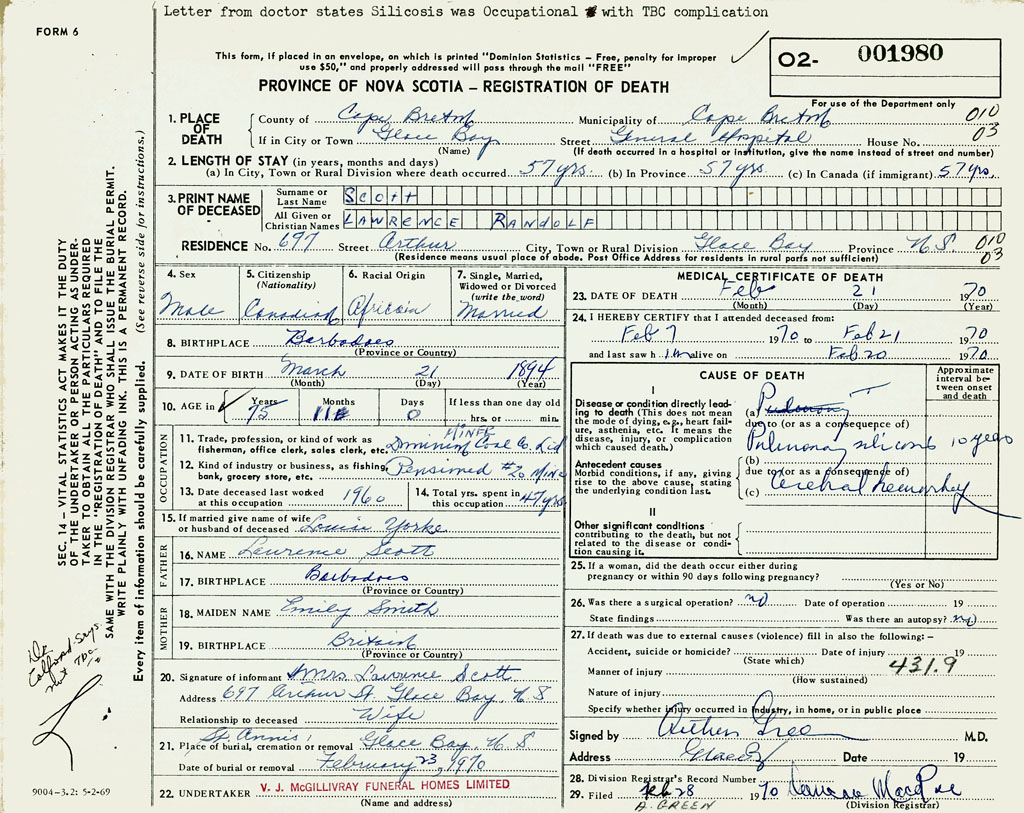 Letter from doctor states Silicosis was Occupational with TBC complication
FORM 6
This form, if placed in an envelope, on which is printed "Dominion Statistics – Free, penalty for improper
use $50," and properly addressed will pass through the mail "FREE"
O2- 001980
PROVINCE OF NOVA SCOTIA – REGISTRATION OF DEATH
For use of the Department only
1. PLACE OF DEATH
County of Cape Breton Municipality of Cape Breton 010
If in City or Town Glace Bay Street General Hospital House No. 03
(Name) (If death occurred in a hospital or institution, give the name instead of street and number)
2. LENGTH OF STAY (in years, months and days)
(a) In City, Town or Rural Division where death occurred 57 yrs. (b) In Province 57 yrs. (c) In Canada (if immigrant) 57 yrs.
3. PRINT NAME OF DECEASED
Surname or Last Name Scott
All Given or Christian Names LAWRENCE RANDOLF
RESIDENCE No. 697 Street Arthur City, Town or Rural Division Glace Bay Province N S 010 03
(Residence means usual place of abode. Post Office Address for residents in rural parts not sufficient)
4. Sex
Male
5. Citizenship
(Nationality)
Canadian
6. Racial Origin
African
7. Single, Married,
Widowed or Divorced
(write the word)
Married
8. BIRTHPLACE Barbadoes
(Province or Country)
9. DATE OF BIRTH March 21 1894
(Month) (Day) (Year)
10. AGE in Years 75 Months 11 Days 0 If less than one day old
hrs. or min.
OCCUPATION
11. Trade, profession, or kind of work as
fisherman, office clerk, sales clerk, etc. MINER Dominion Coal Co. Ltd
12. Kind of industry or business, as fishing,
bank, grocery store, etc. Pensioned #20 Mine
13. Date deceased last worked
at this occupation 1960
14. Total yrs. spent in
this occupation 47 yrs
15. If married give name of wife
or husband of deceased Louise Yorke
FATHER
16. NAME Lawrence Scott
17. BIRTHPLACE Barbadoes
(Province or Country)
MOTHER
18. MAIDEN NAME Emily Smith
19. BIRTHPLACE
(Province or Country)
20. Signature of informant Mrs Lawrence Scott
Address 697 Arthur St. Glace Bay, N S
Relationship to deceased Wife
21. Place of burial, cremation or removal St. Annis' Glace Bay N. S
Date of burial or removal February 23, 1970
22. UNDERTAKER V. J. McGILLIVRAY FUNERAL HOMES LIMITED
(Name and address)
MEDICAL CERTIFICATE OF DEATH
23. DATE OF DEATH Feb 21 1970
(Month) (Day) (Year)
24. I HEREBY CERTIFY that I attended deceased from:
Feb 7 1970 to Feb 21 1970
and last saw h im alive on Feb 20 1970
CAUSE OF DEATH
Approximate
interval be-
tween onset
and death
I
Disease or condition directly lead-
ing to death (This does not mean
the mode of dying, e.g., heart fail-
ure, asthenia, etc. It means the
disease, injury, or complication
which caused death.)
(a) Pulmonary T
due to (or as a consequence of)
Pulmonary silicosis 10 years
(b)
Antecedent causes
Morbid conditions, if any, giving
rise to the above cause, stating
the underlying condition last.
due to (or as a consequence of)
(c) Cerebral
II
Other significant conditions
contributing to the death, but not
related to the disease or condi-
tion causing it.
25. If a woman, did the death occur either during
pregnancy or within 90 days following pregnancy?
(Yes or No)
26. Was there a surgical operation? no Date of operation 19
State findings Was there an autopsy? no
27. If death was due to external causes (violence) fill in also the following: –
Accident, suicide or homicide? Date of injury 19
(State which)
Manner of injury 431.9
(How sustained)
Nature of injury
Specify whether injury occurred in industry, in home, or in public place
Signed by M.D.
Address Date 19
28. Division Registrar's Record Number
29. Filed Feb 28 1970
A. GREEN (Division Registrar)
SEC. 14 – VITAL STATISTICS ACT MAKES IT THE DUTY
OF THE UNDERTAKER OR PERSON ACTING AS UNDER-
TAKER TO OBTAIN ALL THE PARTICULARS REQUIRED
IN THE "REGISTRATION OF DEATH" AND TO FILE THE
SAME WITH THE DIVISION REGISTRAR WHO SHALL ISSUE THE BURIAL PERMIT.
WRITE PLAINLY WITH UNFADING INK. THIS IS A PERMANENT RECORD.
Every item of information should be carefully supplied. (See reverse side for instructions.)
Says
not TBC
9004-3.2: 5-2-69